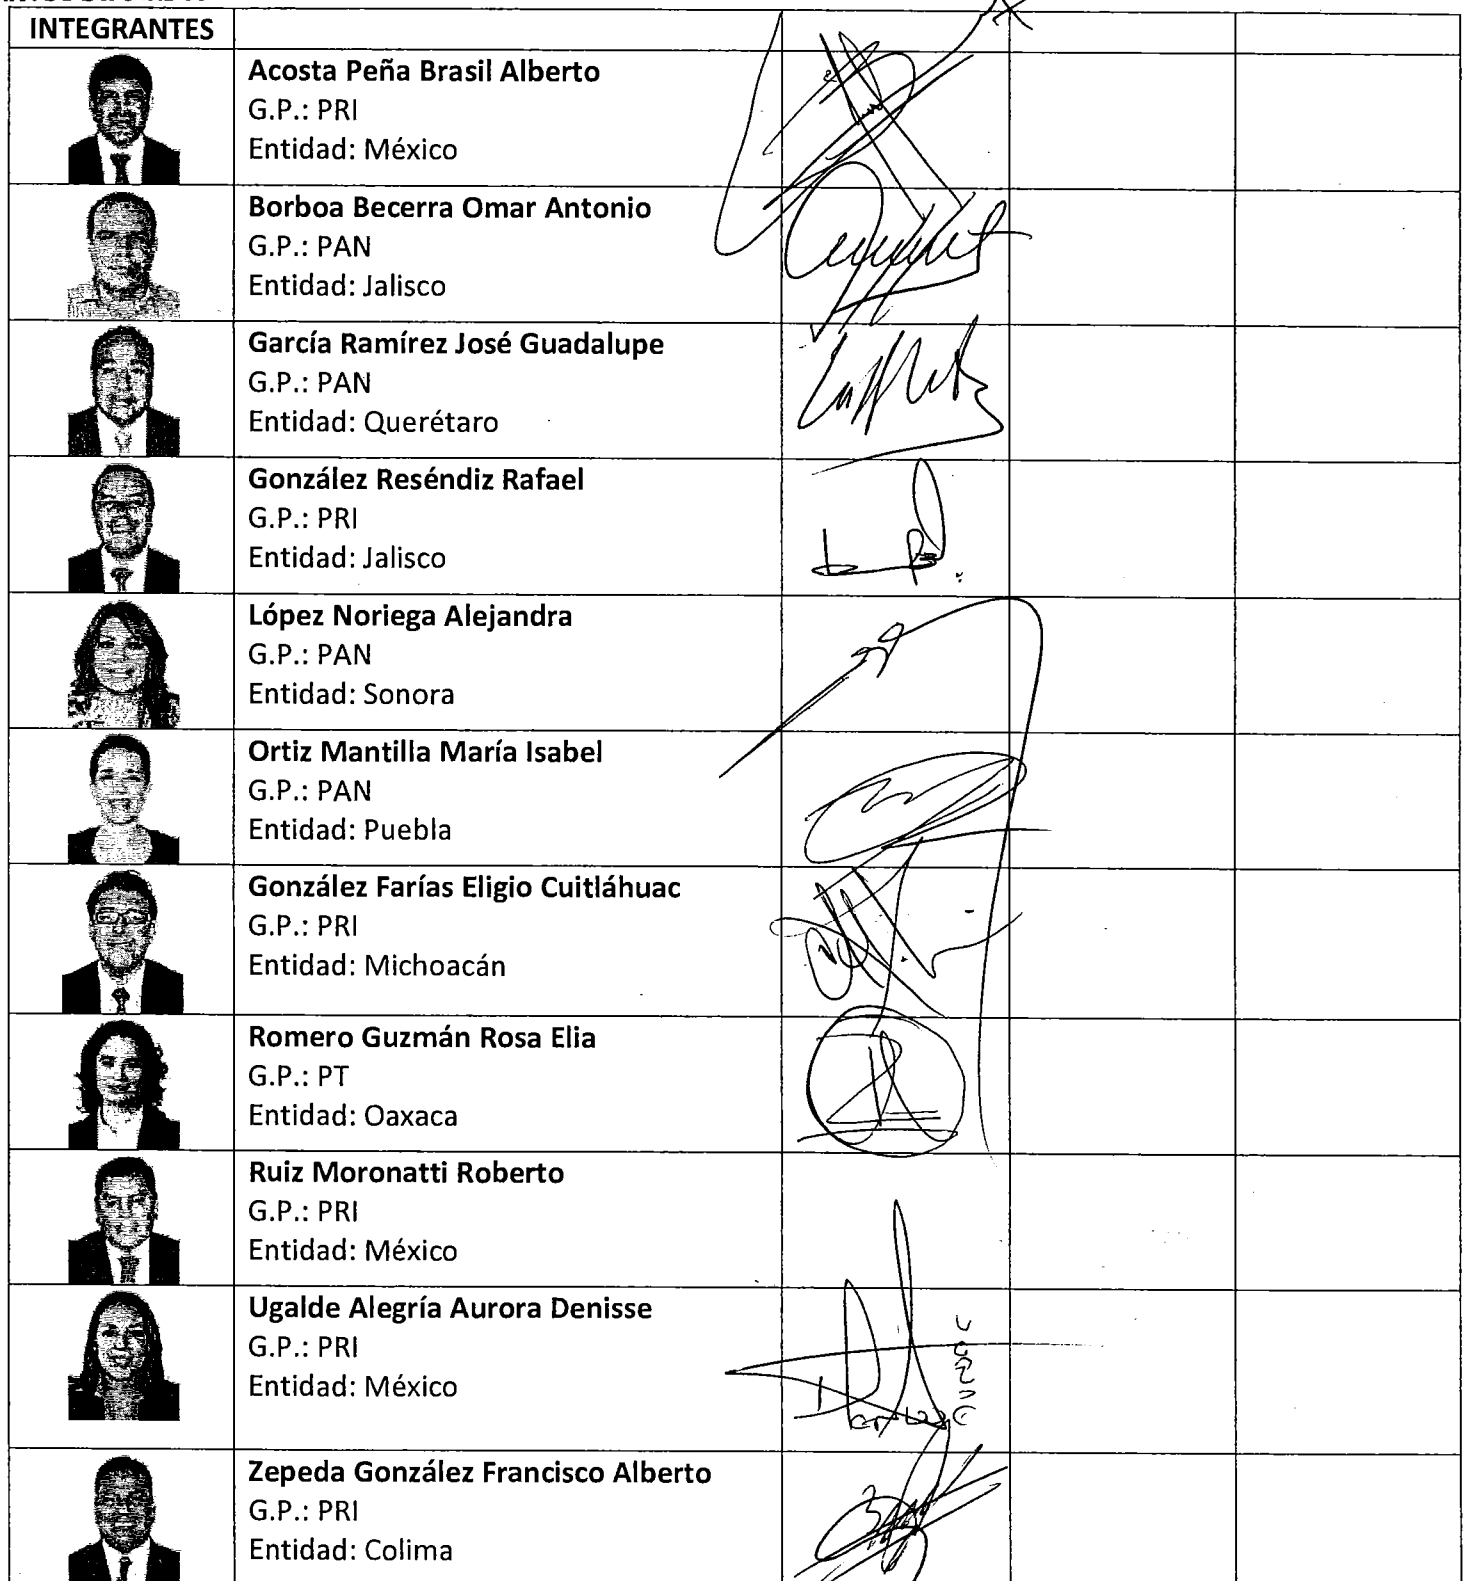 INTEGRANTES
Acosta Peña Brasil Alberto
G.P.: PRI
Entidad: México
Borboa Becerra Omar Antonio
G.P.: PAN
Entidad: Jalisco
García Ramírez José Guadalupe
G.P.: PAN
Entidad: Querétaro
González Reséndiz Rafael
G.P.: PRI
Entidad: Jalisco
López Noriega Alejandra
G.P.: PAN
Entidad: Sonora
Ortiz Mantilla María Isabel
G.P.: PAN
Entidad: Puebla
González Farías Eligio Cuitláhuac
G.P.: PRI
Entidad: Michoacán
Romero Guzmán Rosa Elia
G.P.: PT
Entidad: Oaxaca
Ruiz Moronatti Roberto
G.P.: PRI
Entidad: México
Ugalde Alegría Aurora Denisse
G.P.: PRI
Entidad: México
Zepeda González Francisco Alberto
G.P.: PRI
Entidad: Colima